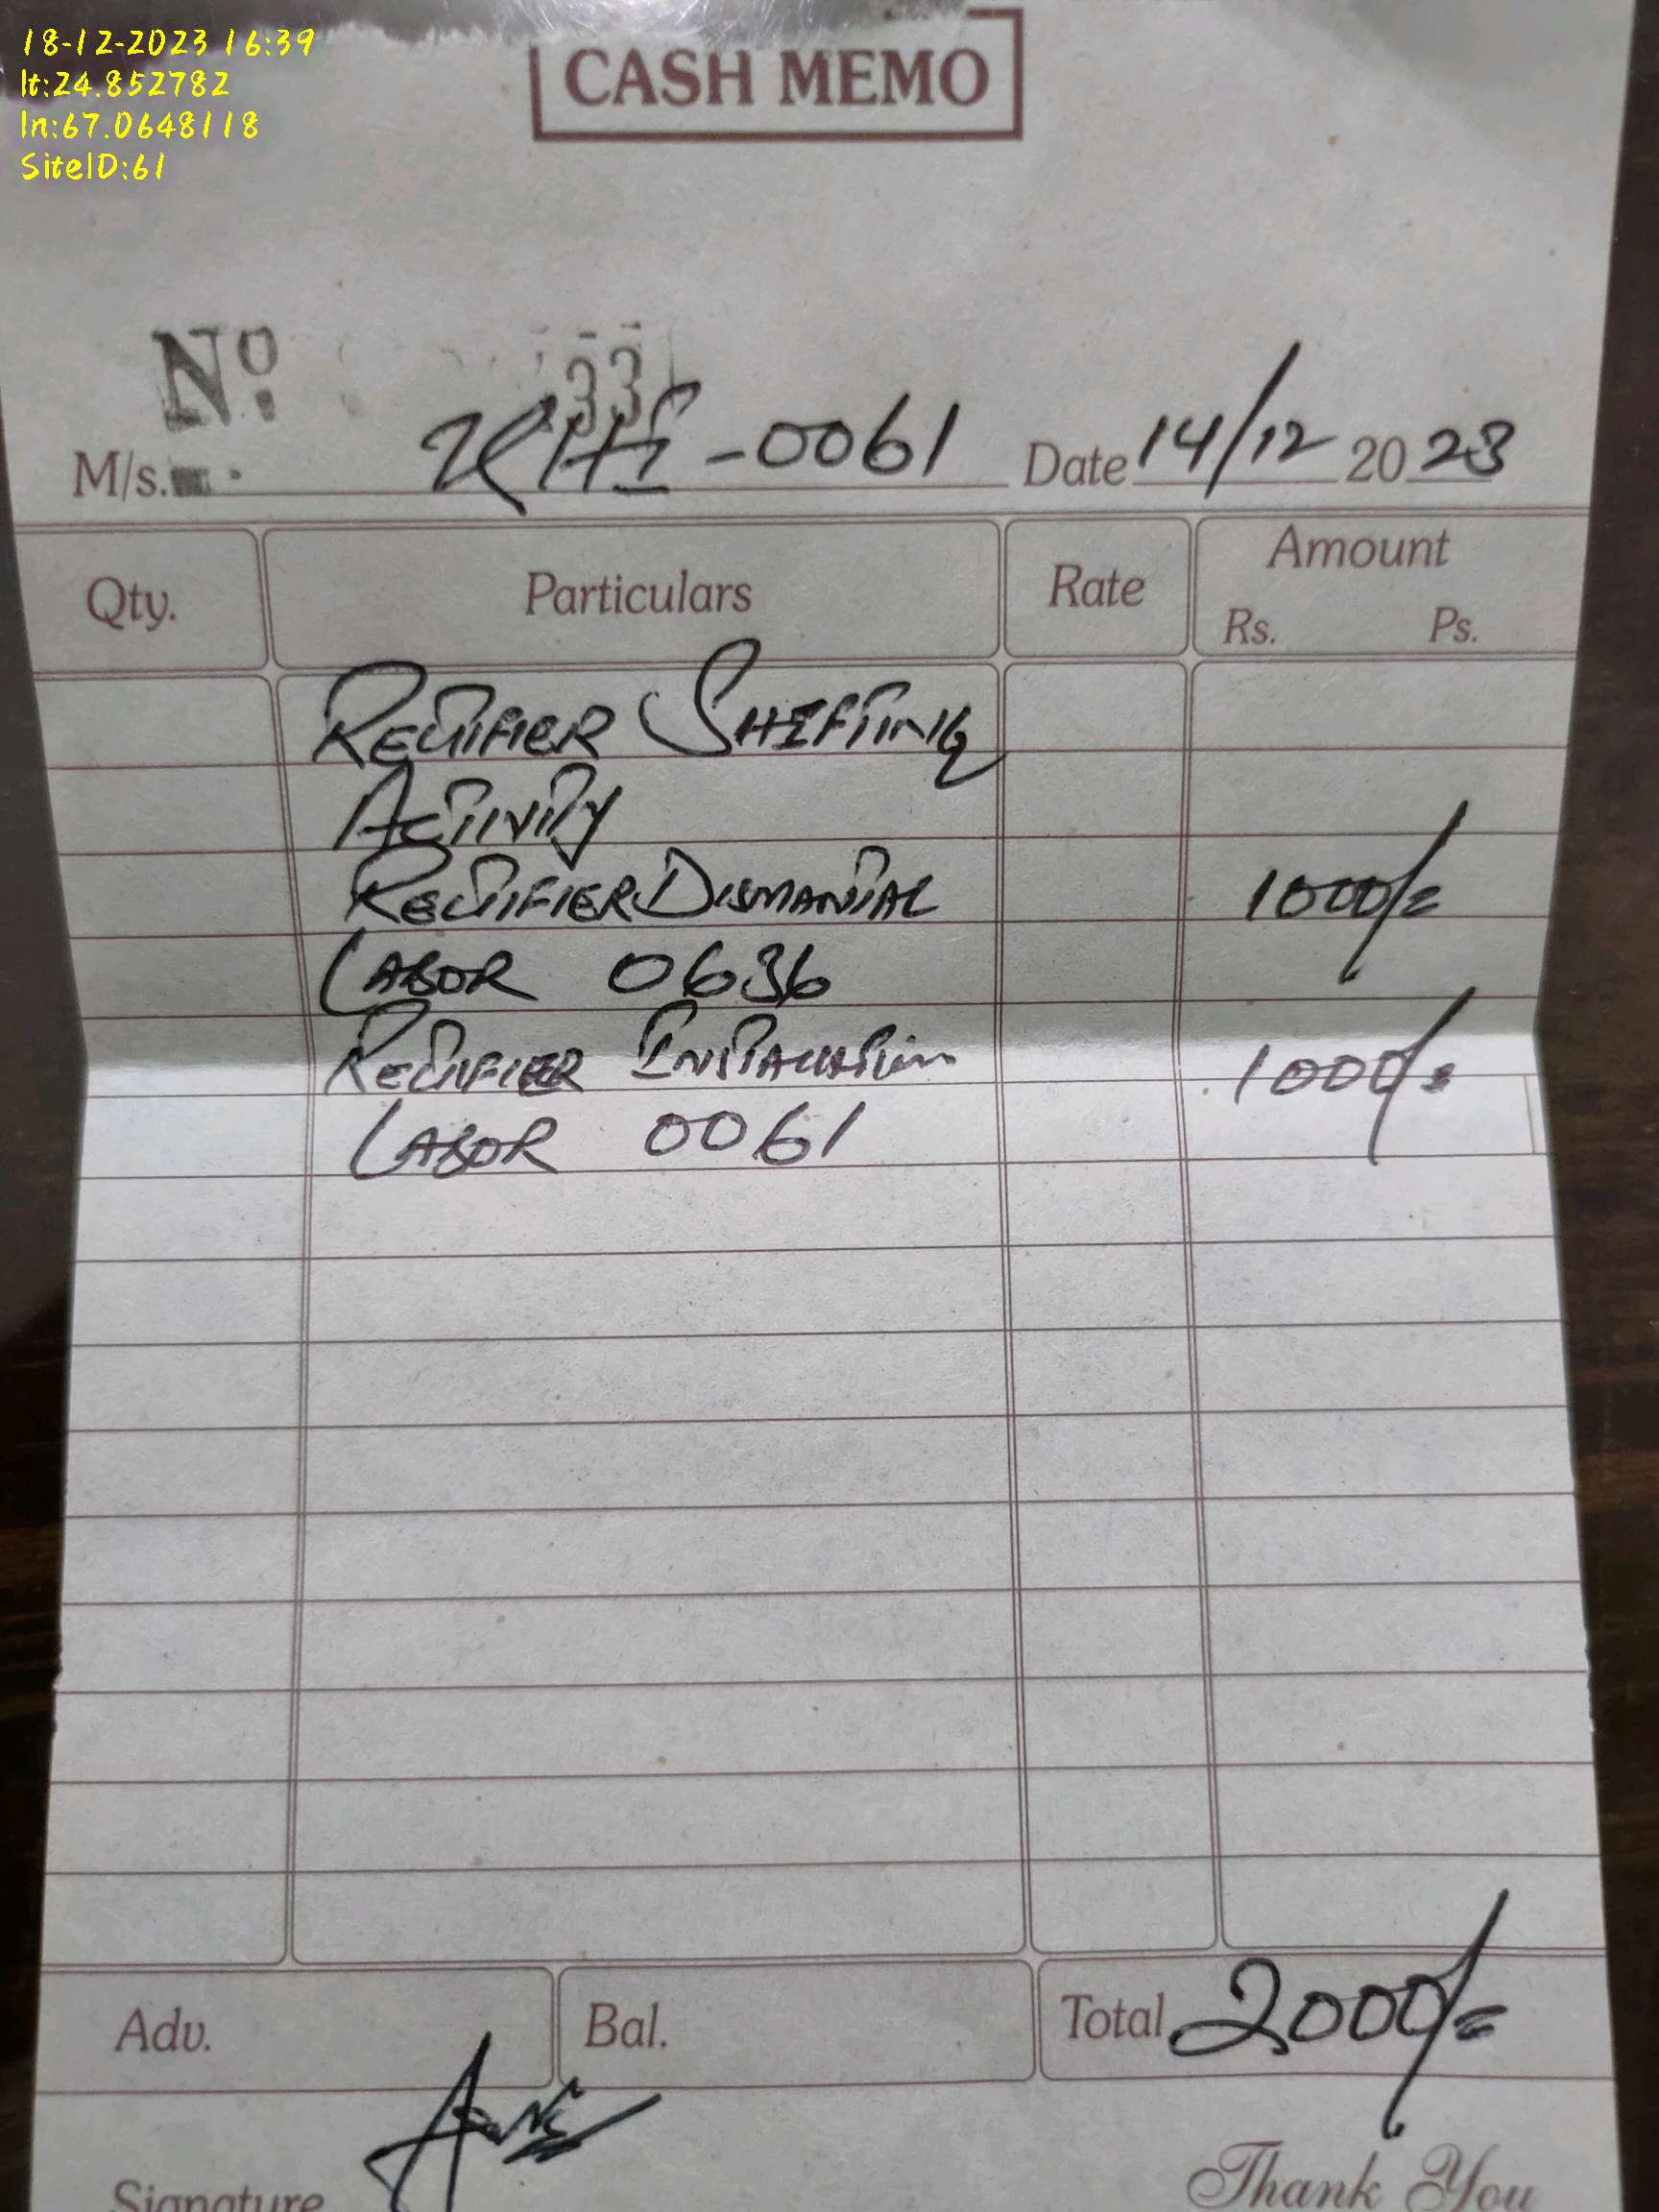 18-12-2023 16:39
lt:24.852782
ln:67.0648118
SiteID:61
CASH MEMO
Nº 33
M/s. KHI-0061 Date 14/12 2023
Qty. Particulars Rate Amount
Rs. Ps.
RECTIFIER SHIFTING
ACTIVITY
RECTIFIER DISMANTAL 1000/=
LABOR 0636
RECTIFIER INSTALLATION 1000/=
LABOR 0061
Adv. Bal. Total 2000/=
Signature Thank You